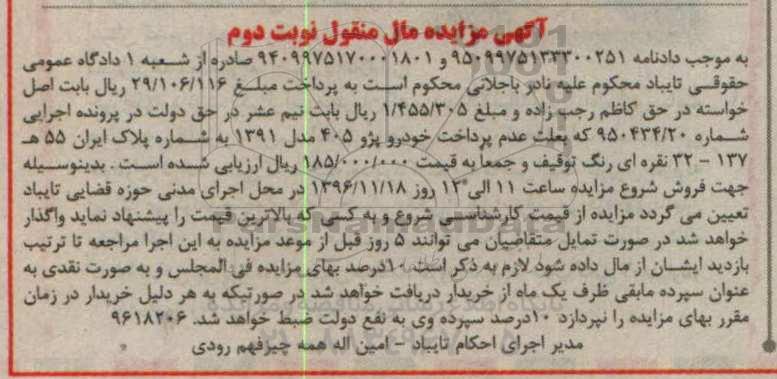 آگهی مزایده مال منقول نوبت دوم
به موجب دادنامه ۹۵۰۹۹۷۵۱۳۳۳۰۰۲۵۱ و ۹۴۰۹۹۷۵۱۷۰۰۰۱۸۰۱ صادره از شعبه ۱ دادگاه عمومی
حقوقی تایباد محکوم علیه نادر باجلانی محکوم است به پرداخت مبلغ ۲۹/۱۰۶/۱۱۶ ریال بابت اصل
خواسته در حق کاظم رجب زاده و مبلغ ۱/۴۵۵/۳۰۵ ریال بابت نیم عشر در حق دولت در پرونده اجرایی
شماره ۹۵۰۴۳۴/۲۰ که بعلت عدم پرداخت خودرو پژو ۴۰۵ مدل ۱۳۹۱ به شماره پلاک ایران ۵۵ هـ
۱۳۷ - ۳۲ نقره ای رنگ توقیف و جمعا به قیمت ۱۸۵/۰۰۰/۰۰۰ ریال ارزیابی شده است . بدینوسیله
جهت فروش شروع مزایده ساعت ۱۱ الی ۱۲ روز ۱۳۹۶/۱۱/۱۸ در محل اجرای مدنی حوزه قضایی تایباد
تعیین می گردد مزایده از قیمت کارشناسی شروع و به کسی که بالاترین قیمت را پیشنهاد نماید واگذار
خواهد شد در صورت تمایل متقاضیان می توانند ۵ روز قبل از موعد مزایده به این اجرا مراجعه تا ترتیب
بازدید ایشان از مال داده شود لازم به ذکر است ۱۰درصد بهای مزایده فی المجلس و به صورت نقدی به
عنوان سپرده مابقی ظرف یک ماه از خریدار دریافت خواهد شد در صورتیکه به هر دلیل خریدار در زمان
مقرر بهای مزایده را نپردازد ۱۰درصد سپرده وی به نفع دولت ضبط خواهد شد. ۹۶۱۸۲۰۶
مدیر اجرای احکام تایباد - امین اله همه چیزفهم رودی
ParsNamadData